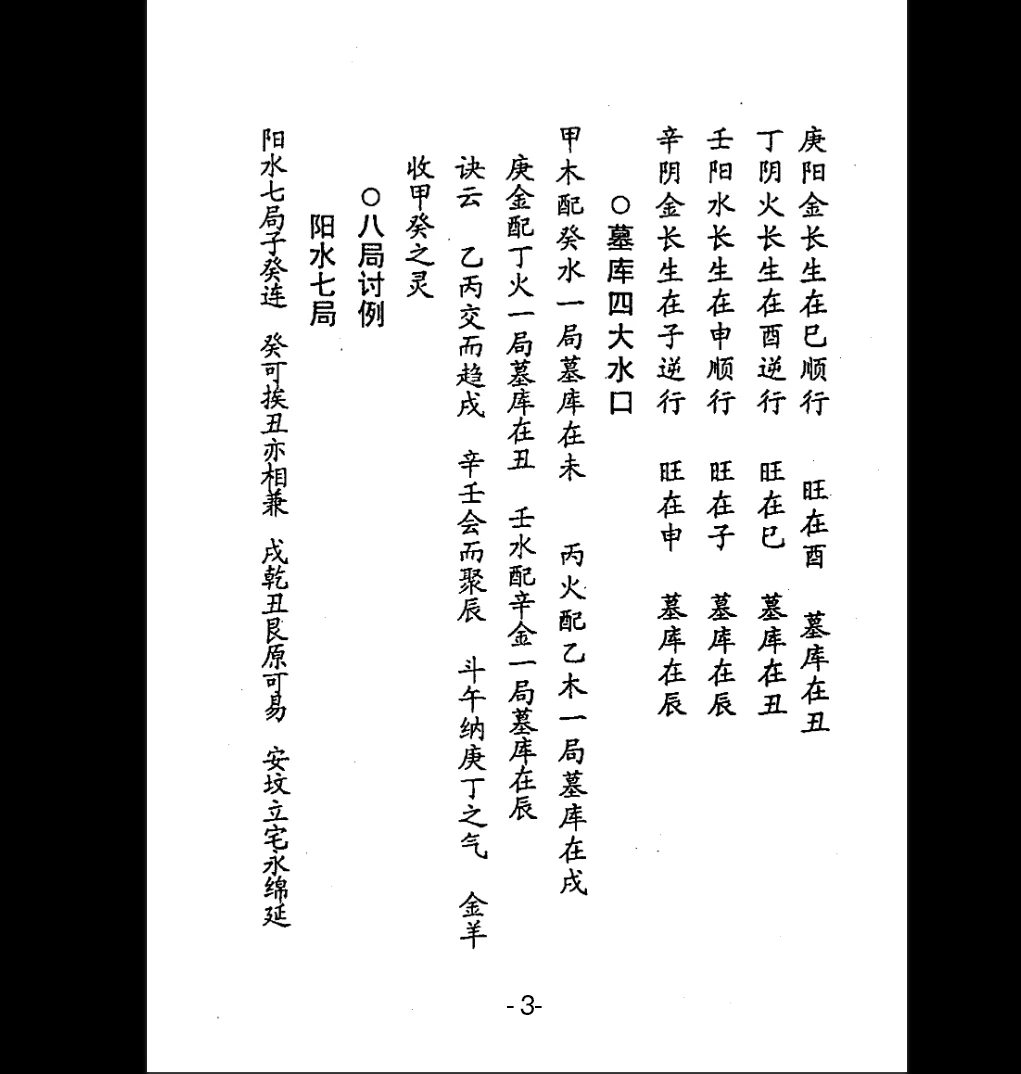 庚阳金长生在巳顺行 旺在酉 墓库在丑
丁阴火长生在酉逆行 旺在巳 墓库在丑
壬阳水长生在申顺行 旺在子 墓库在辰
辛阴金长生在子逆行 旺在申 墓库在辰
○墓库四大水口
甲木配癸水一局墓库在未 丙火配乙木一局墓库在戌
庚金配丁火一局墓库在丑 壬水配辛金一局墓库在辰
诀云 乙丙交而趋戌 辛壬会而聚辰 斗午纳庚丁之气 金羊
收甲癸之灵
○八局讨例
阳水七局
阳水七局子癸连 癸可挨丑亦相兼 戌乾丑艮原可易 安坟立宅永绵延
- 3-